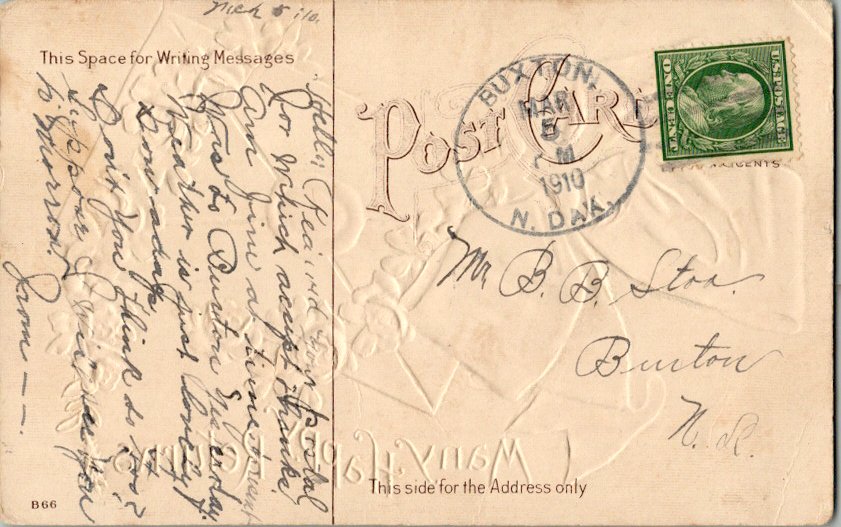 Mch 5 '10.
This Space for Writing Messages
"Hello" Rec'd your postal
for which accept thanks
am fine at
Was to Buxton Yesterday
Weather is just lovely
now adays
Don't You think so too?
Suppose I will see you
to Morrow.
From — — .
B66
POST CARD
BUXTON,
MAR
5
M
1910
N. DAK.
U.S. POSTAGE
ONE CENT
Mr B. B. Stoa.
Buxton
N. D.
Many Happy Returns
This side for the Address only